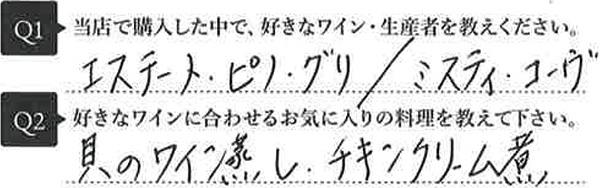 Q1 当店で購入した中で、好きなワイン・生産者を教えください。
エステート・ピノ・グリ/ミスティ・コーヴ
Q2 好きなワインに合わせるお気に入りの料理を教えて下さい。
貝のワイン蒸し・チキンクリーム煮